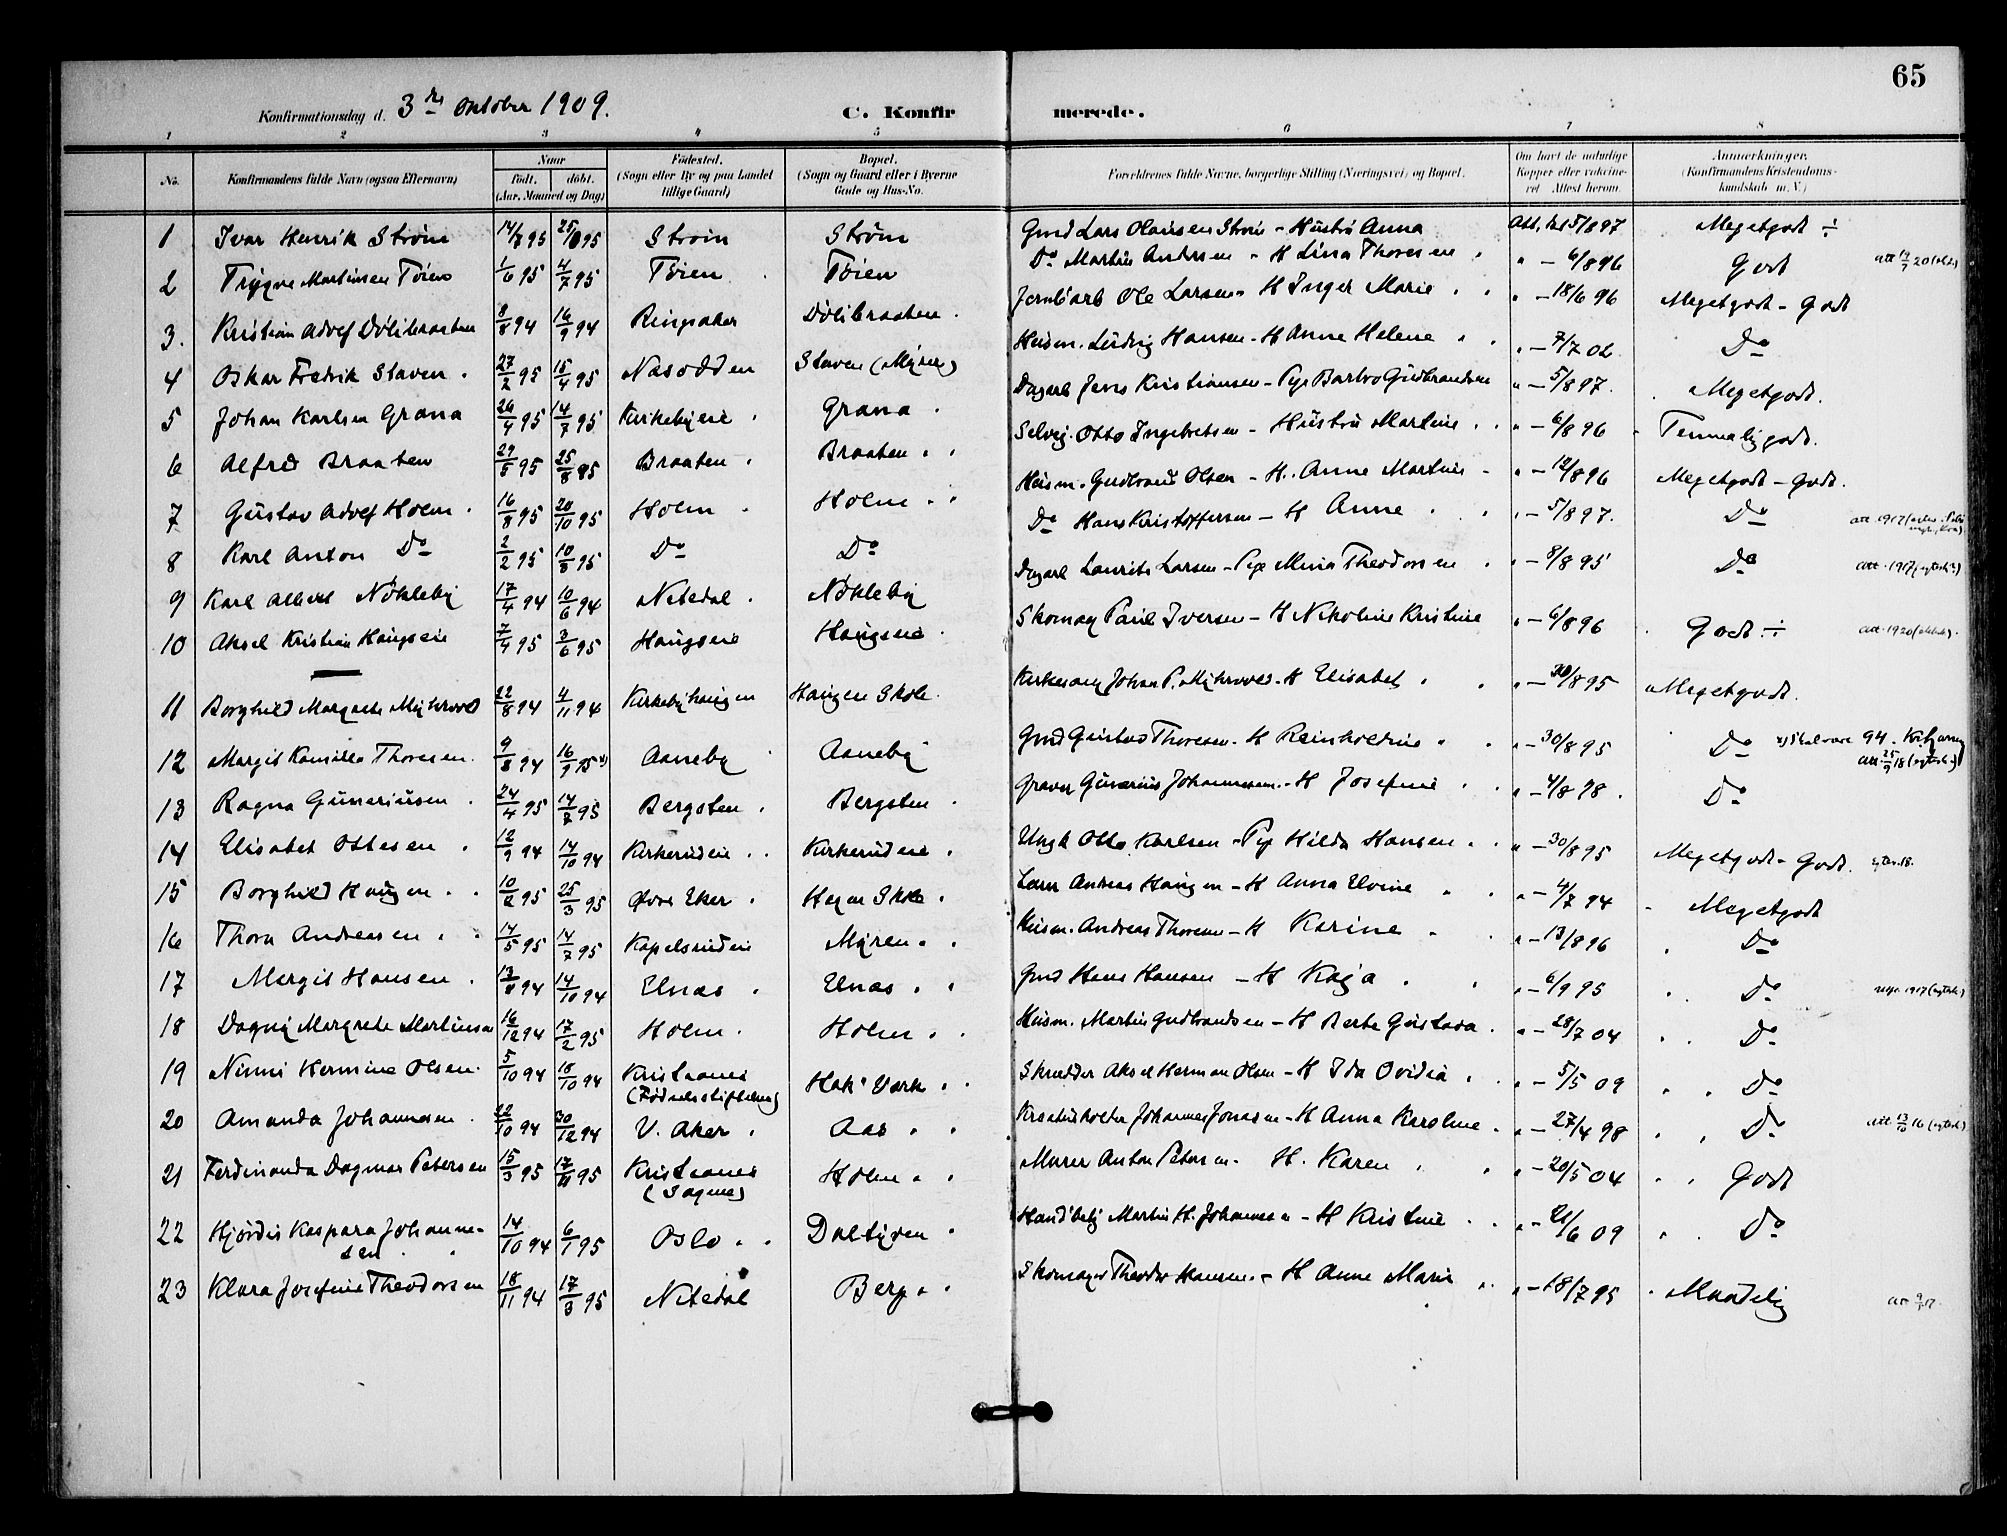 65
Konfirmationsdag d. 3die Oktober 1909. C. Konfirmerede.
1 2 3 4 5 6 7 8
No. Konfirmandens fulde Navn (ogsaa Efternavn) Naar født. døbt. (Aar, Maaned og Dag) Fødested. (Sogn eller By og paa Landet tillige Gaard) Bopæl. (Sogn og Gaard eller i Byerne Gade og Hus-No. Forældrenes fulde Navne, borgerlige Stilling (Næringsvei) og Bopæl. Om havt de naturlige Kopper eller vaccineret Attest herom. Anmerkninger. (Konfirmandens Kristendomskundskab m. V.)
1 Ivar Henrik Strøm 14/7 95 25/8 95 Strøm Strøm Gmd Lars Olausen Strøm - Hustru Anna Att. 5/8 97 Megetgodt ÷
2 Trygve Martinsen Tøien 1/6 95 4/7 95 Tøien Tøien Do Martin Andersen - H Lina Thoresen " - 6/8 96 Godt
3. Kristian Adolf Dølibraaten 8/8 94 16/9 94 Ringsaker Dølibraaten Jernb.arb Ole Larsen - H Inger Marie " - 18/6 96 Megetgodt - Godt
4 Oskar Fredrik Staven 27/2 95 15/4 95 Nesodden Staven (Myren) Husm. Ludvig Hansen - H Anne Helene " - 7/7 02 Do
5 Johan Karlsen Grana 26/4 95 14/7 95 Kirkebyeie Grana Dagarb Jens Kristiansen - Pige Barbro Gudbrandsen " - 5/8 97. Megetgodt.
6 Alfred Braaten 29/5 95 25/8 95 Braaten Braaten Selvej. Otto Ingebretsen - Hustru Martine " - 6/8 96 Temmelig godt.
7 Gustav Adolf Holm 16/8 95 20/10 95 Holm Holm Husm. Gudbrand Olsen - H. Anne Martine " - 12/8 96 Megetgodt - Godt.
8 Karl Anton Do 2/2 95 10/3 95 Do Do Do Hans Kristoffersen - H Anne " - 5/8 97. Do
9 Karl Albert Nökleby 17/4 94 10/6 94 Nitedal Nökleby Dagarb Laurits Larsen - Pige Mina Theodorsen " - 8/8 95 Do att. 1917
10 Aksel Kristian Haugseie 7/4 95 3/6 95 Haugseie Haugseie Skomag Paul Iversen - H Nikoline Kristine " - 6/8 96 Godt ÷ att. 1920
11 Borghild Margrete Myhrvold 22/8 94 4/11 94 Kirkebyhaugen Haugen Skole Kirkesang Johan P. Myhrvold - H Elisabet " - 30/8 95 Megetgodt.
12 Margit Kamilla Thoresen 9/8 94 16/9 95 x) Aaneby Aaneby Gmd Gustav Thoresen - H Reinholdine " - 30/8 95 Do x) Skal være 94.
13 Ragna Gunariusen 24/4 95 14/7 95 Bergsten Bergsten Graver Gunarius Johannesen - H Josefine " - 4/8 98 Do
14 Elisabet Ottesen 12/9 94 14/10 94 Kirkerudeie Kirkerudeie Ungk Otto Karlsen - Pige Hilda Hansen " - 30/8 95 Megetgodt - Godt.
15 Borghild Haugen 10/2 95 25/3 95 Øvre Eker Hagen Skole Lærer Andreas Haugen - H Anna Elvine " - 4/7 94 Megetgodt
16 Thora Andreasen 14/5 95 14/7 95 Kapelsrudeie Myren Husm. Andreas Thoresen - H Karine " - 13/8 96 Do
17 Margit Hansen 13/8 94 14/10 94 Elnæs Elnæs Gmd Hans Hansen - H Kaja " - 6/9 95 Do
18 Dagny Margrete Martinsen 16/12 94 17/2 95 Holm Holm Husm. Martin Gudbrandsen - H Berte Gustava " - 28/7 04 Do
19 Ninni Hermine Olsen 5/10 94 18/10 94 Kristiania (Fødselsstiftelsen) Hak. Værk Skrædder Aksel Herman Olsen - H Ida Ovidia " - 5/5 09 Do
20 Amanda Johannesen 22/10 94 30/12 94 V. Aker Aas Johannes Jonasen - H Anna Karoline " - 27/4 98 Do
21 Ferdinanda Dagmar Petersen 15/3 95 17/11 95 Kristiania (Sagene) Holm Murer Anton Petersen - H. Karen " - 20/5 04 Godt
22 Hjørdis Kaspara Johannesen 14/10 94 6/1 95 Oslo Daltjven Martin H. Johannesen - H Kristine " - 21/6 09 Do
23 Klara Josefine Theodorsen 18/11 94 17/3 95 Nitedal Berg Skomager Theodor Hansen - H Anne Marie " - 18/7 95 Maadelig